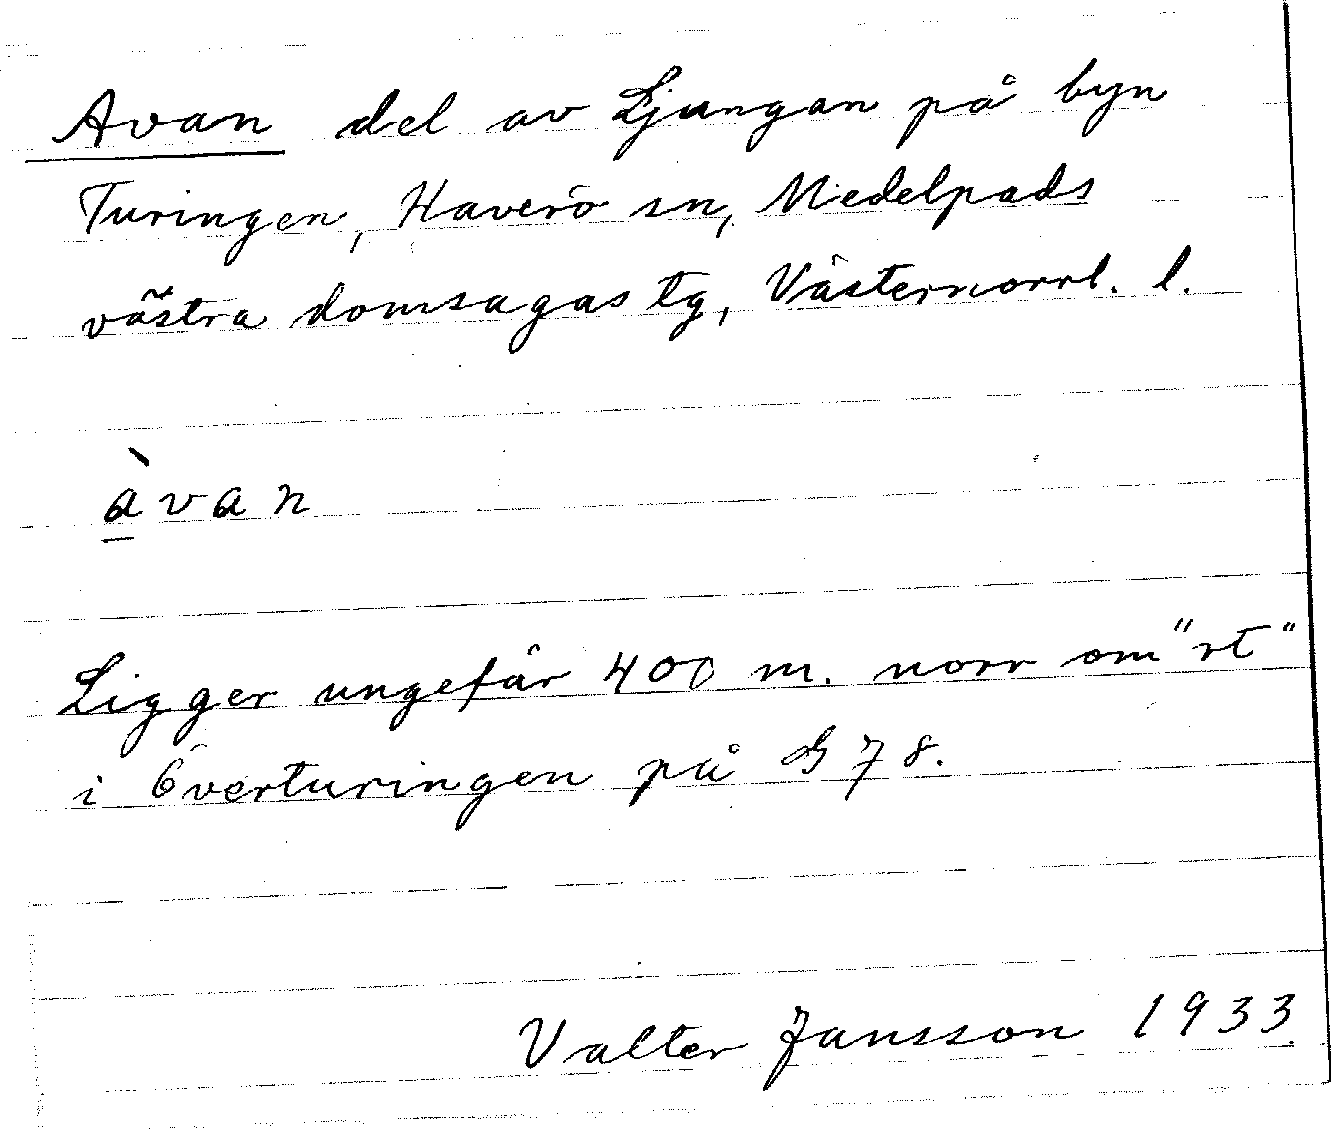 Avan del av Ljungan på byn
Turingen, Haverö sn, Medelpads
västra domsagas tg, Västernorrl. l.
à̱van
Ligger ungefär 400 m. norr om "rt"
i Överturingen på G 78.
Valter Jansson 1933.